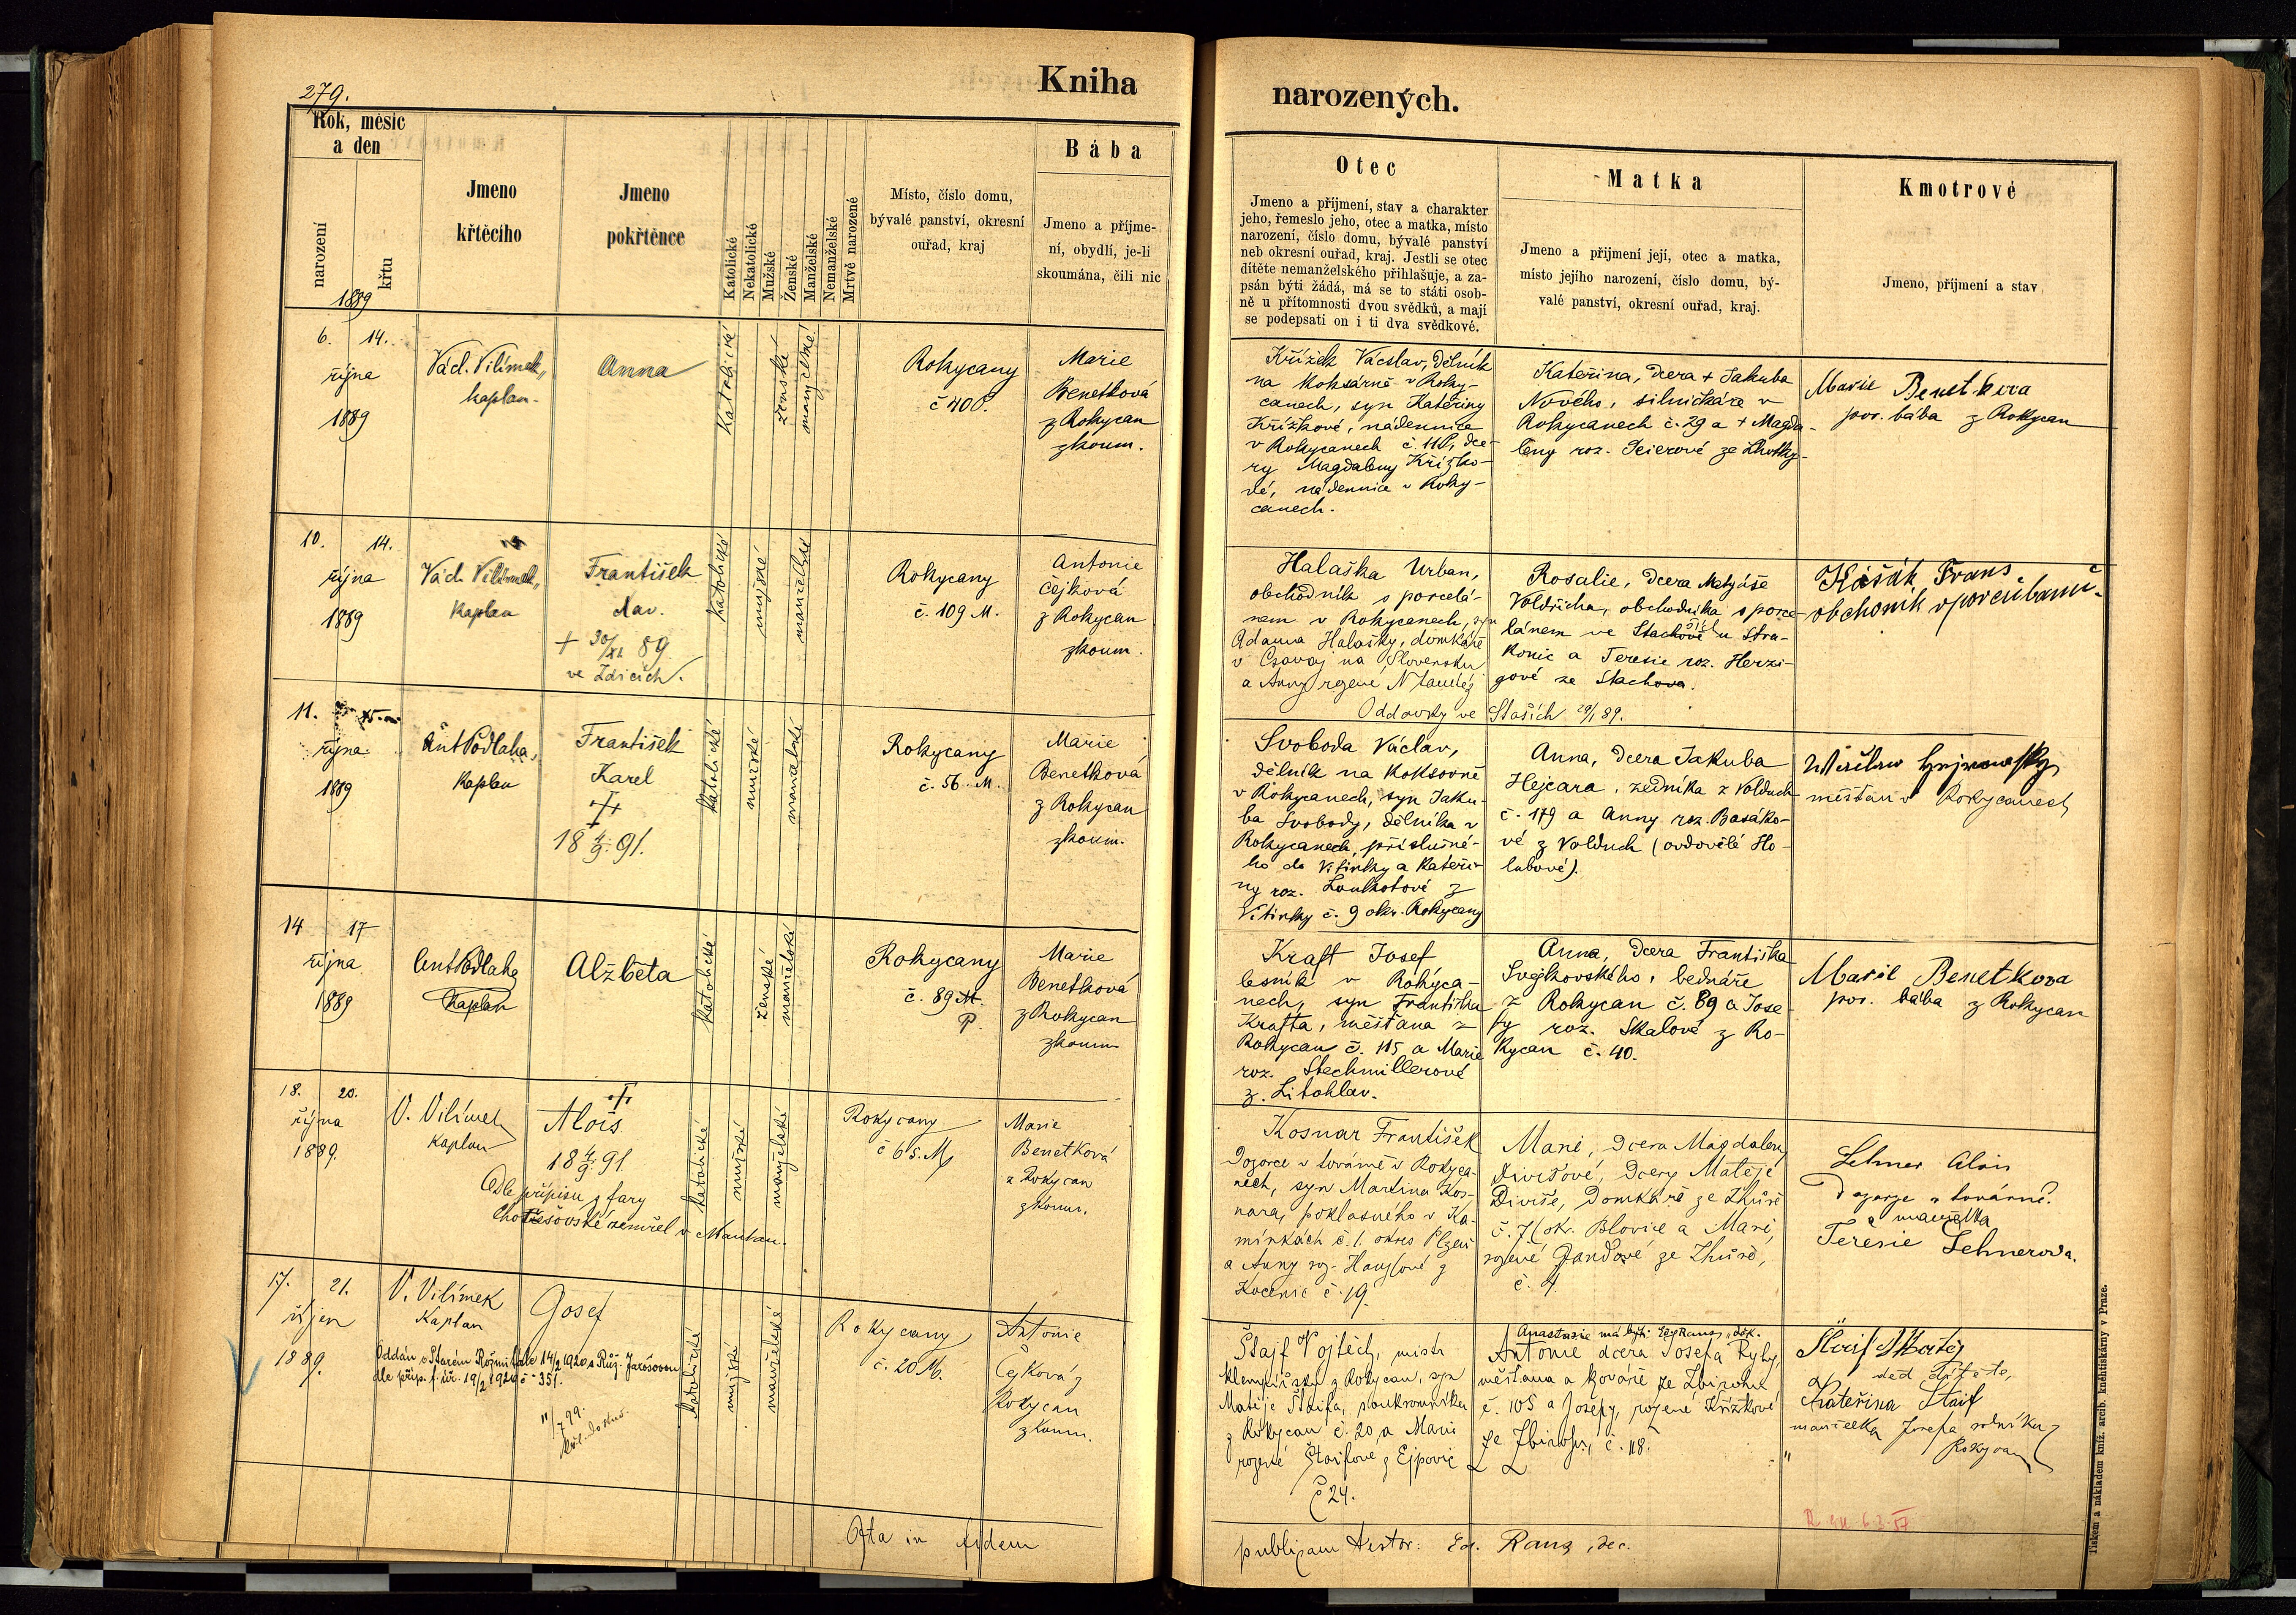 279.
Kniha
narozených.
Rok, měsíc
a den
narození
křtu
1889
Jmeno
křtěcího
Jmeno
pokřtěnce
Katolické
Nekatolické
Mužské
Ženské
Manželské
Nemanželské
Mrtvě narozené
Místo, číslo domu,
bývalé panství, okresní
ouřad, kraj
Bába
Jmeno a příjme-
ní, obydlí, je-li
skoumána, čili nic
Otec
Jmeno a příjmení, stav a charakter
jeho, řemeslo jeho, otec a matka, místo
narození, číslo domu, bývalé panství
neb okresní ouřad, kraj. Jestli se otec
dítěte nemanželského přihlašuje, a za-
psán býti žádá, má se to státi osob-
ně u přítomnosti dvou svědků, a mají
se podepsati on i ti dva svědkové.
Matka
Jmeno a přijmení její, otec a matka,
místo jejího narození, číslo domu, bý-
valé panství, okresní ouřad, kraj.
Kmotrové
Jmeno, příjmení a stav
6. 14.
října
1889
Václ. Vilímek,
kaplan
Anna
katolické
ženské
manželské
Rokycany
č 40 P.
Marie
Benetková
z Rokycan
zkoum.
Křížek Václav, dělník
na Koksárně v Roky-
canech, syn Kateřiny
Křížkové, nádennice
v Rokycanech č. 11 P., dce-
ry Magdaleny Křížko-
vé, nádennice v Roky-
canech.
Kateřina, dcera + Jakuba
Nového, silničkáře v
Rokycanech č. 29 a + Magda-
leny roz. Scierové ze Lhotky
Marie Benetkova
por. bába z Rokycan
10. 14.
října
1889
Václ. Vilímek,
Kaplan
František
Vav.
+ 30/XI 89
ve Zdicích.
katolické
mužské
manželské
Rokycany
č. 109 M.
Antonie
Čejková
z Rokycan
zkoum.
Halaška Urban,
obchodník s porcelá-
nem v Rokycanech, syn
Adama Halašky, domkáře
v na Slovensku
a Anny rozené
Rosalie, dcera Matyáše
Voldřicha, obchodníka s porce-
lánem ve Stachově u Stra-
konic a Teresie roz. Herzi-
gové ze Stachova.
Oddavky ve Staších 29/1 89.
Kašák Frans
obchoník
11. 15.
října
1889
Ant Podlaha,
Kaplan
František
Karel
+
18 4/9 91.
katolické
mužské
manželské
Rokycany
č. 56. M.
Marie
Benetková
z Rokycan
zkoum.
Svoboda Václav,
dělník na Koksovně
v Rokycanech, syn Jaku-
ba Svobody, dělníka v
Rokycanech, příslušné-
ho do Vitinky a Kateři-
ny roz. Loukotové z
Vitinky č. 9 okr. Rokycany
Anna, dcera Jakuba
Hejcara, zedníka z Volduch
č. 179 a Anny roz. Basáko-
vé z Volduch (ovdovělé Ho-
lubové).
měšťan v Rokycanech
14 17
října
1889
Ant Podlaha
Kaplan
Alžběta
katolické
ženské
manželské
Rokycany
č. 89 M.
P.
Marie
Benetková
z Rokycan
zkoum
Kraft Josef
lesník v Rokyca-
nech, syn Františka
Krafta, měšťana z
Rokycan č. 115 a Marie
roz. Stechmillerové
z Litohlav.
Anna, dcera Františka
Svejkovského, bednáře
z Rokycan č. 89 a Jose-
fy roz. Skalové z Ro-
kycan č. 40.
Marie Benetkova
por. bába z Rokycan
18. 20.
října
1889.
V. Vilímek
Kaplan
+
Alois
18 4/9 91
Dle přípisu z fary
Chotěšovské zemřel v Mantau.
katolické
mužské
manželské
Rokycany
č 65. M.
Marie
Benetková
z Rokycan
zkoum.
Kosnar František
Dozorce v továrně v Rokyca-
nech, syn Martina Kos-
nara, poklasného v Ka-
mínkách č. 1. okres Plzeň
a Anny roz. Hauslové z
Kocenic č. 19.
Marie, dcera Magdaleny
Divišové, dcery Matěje
Diviše, Domkáře ze Zhůře
č. 7 (ok. Blovice a Marie,
rozené Jandové ze Zhůře,
č. 4.
Lehner Alois
Dozorce v továrně.
a manželka
Teresie Lehnerova.
17. 21.
říjen
1889.
V. Vilímek
Kaplan
Josef
Oddán v Starém Rožmitále 14/2 1920 s Růž. Jarošovou
dle příp. f. úř. 19/2 1920 č. 351.
11/7 99.
katolické
mužské
manželské
Rokycany
č. 20 M.
Antonie
Čejková z
Rokycan
zkoum.
Štajf Vojtěch, mistr
klempířský z Rokycan, syn
Matěje Štaifa, soukromníka
z Rokycan č. 20, a Marie
rozené Štaiflové z Ejpovic
č 24.
Anastasie má býti: Ed Rans, děk.
Antonie dcera Josefa Ryby,
měšťana a kováře ze Zbiroha
č. 105 a Josefy, rozené Křížkové
ze Zbiroha, č. 118.
Štaif Matěj
děd dítěte,
Kateřina Štaif
manželka Josefa rolníka z
Rokycan
Ojta in fidem
publicam testor: Ed. Rans, dec.
Tiskem a nákladem kníž. arcib. knihtiskárny v Praze.